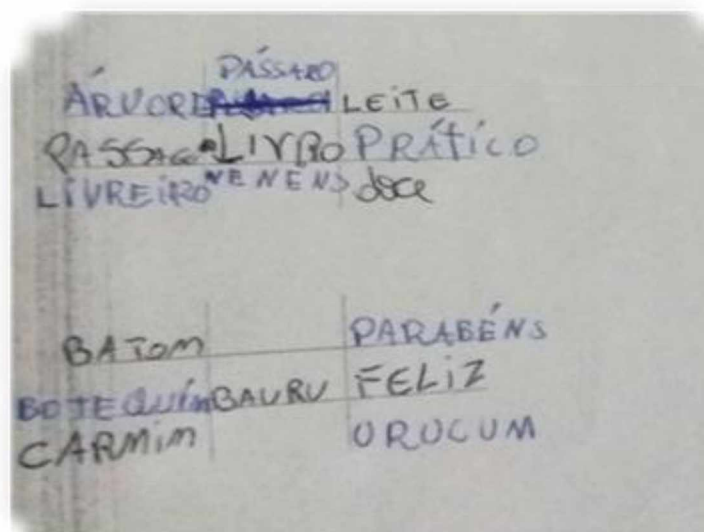 PÁSSARO
ÁRVORE LEITE
PASSAGE LIVRO PRÁTICO
LIVREIRO NENENS doce
BATOM PARABÉNS
BOTEQUIM BAURU FELIZ
CARMIM URUCUM